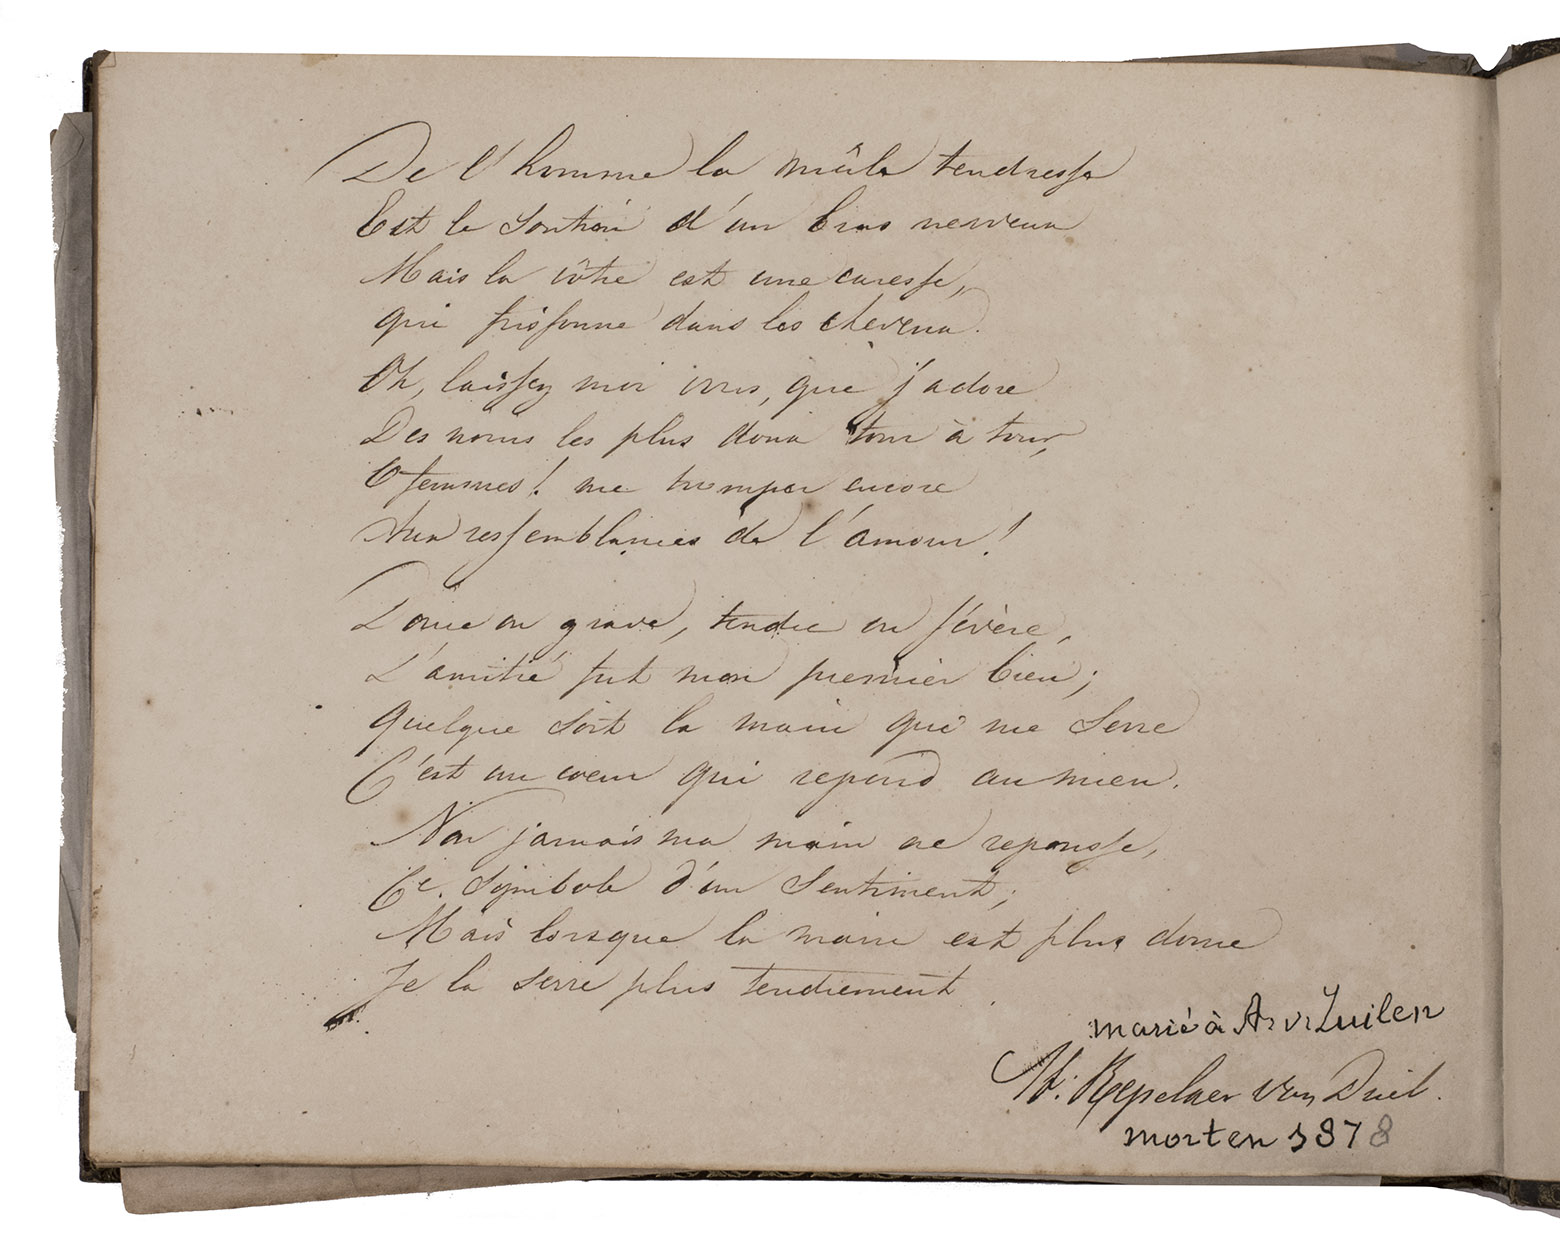 De l'homme la mâle tendresse
Est le soutien d'un bras nerveux
Mais la vôtre est une caresse,
qui frissonne dans les cheveux.
Oh, laissez moi vous, que j'adore
Des noms les plus doux tour à tour,
O femmes! me tromper encore
Aux ressemblances de l'amour!
Douce ou grave, tendre ou sévère,
L'amitié fut mon premier bien;
Quelque soit la main qui me serre
C'est un coeur qui repond au mien.
Non jamais ma main ne repousse,
Ce. Symbole d'un sentiment;
Mais lorsque la main est plus douce
Je la serre plus tendrement.
marié à A. v. Zuilen
Repelaer van Driel.
mort en 1878